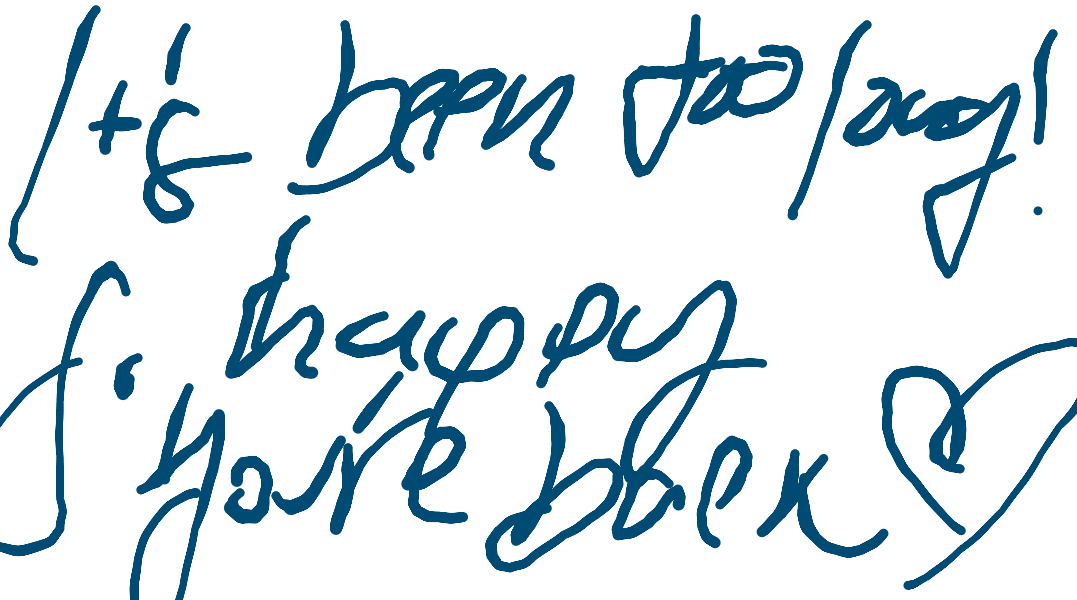 It's been too long!
So happy
you're back